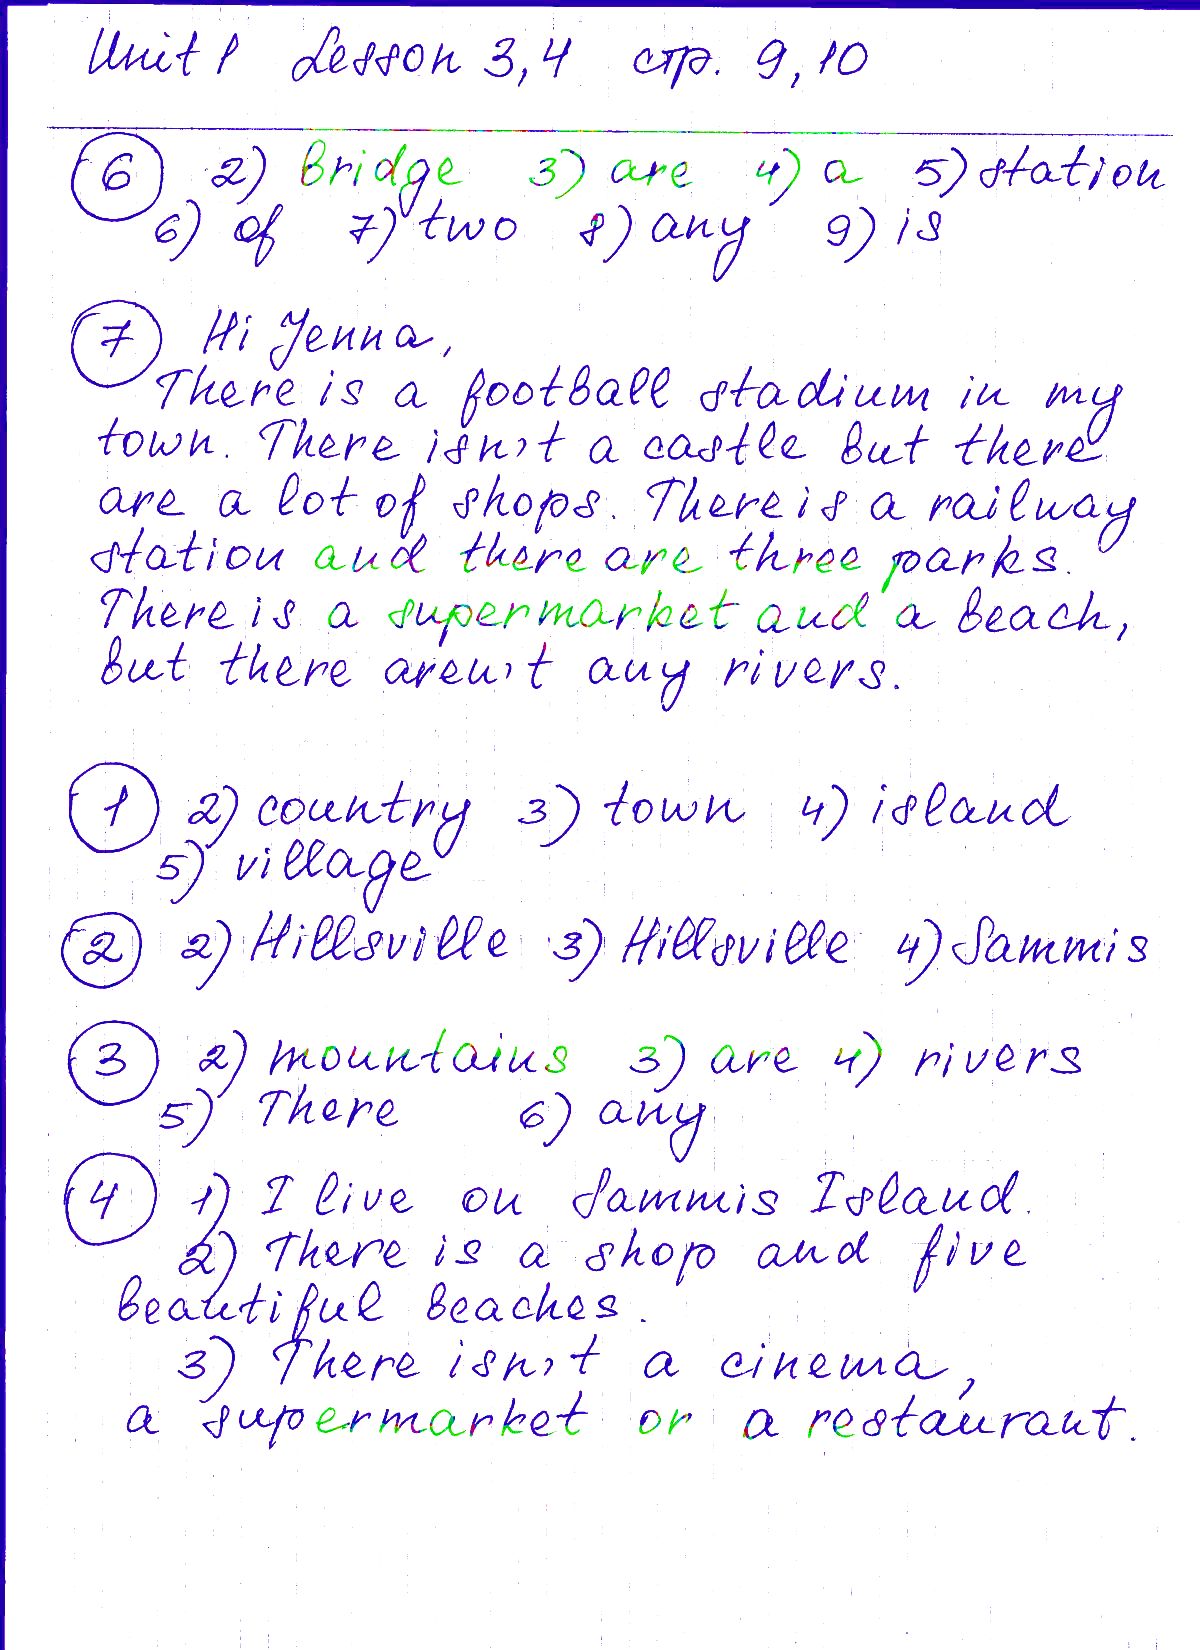 Unit 1 Lesson 3,4 стр. 9,10
6 2) bridge 3) are 4) a 5) station
6) of 7) two 8) any 9) is
7 Hi Jenna,
There is a football stadium in my
town. There isn't a castle but there
are a lot of shops. There is a railway
station and there are three parks.
There is a supermarket and a beach,
but there aren't any rivers.
1 2) country 3) town 4) island
5) village
2 2) Hillsville 3) Hillsville 4) Sammis
3 2) mountains 3) are 4) rivers
5) There 6) any
4 1) I live on Sammis Island.
2) There is a shop and five
beautiful beaches.
3) There isn't a cinema,
a supermarket or a restaurant.